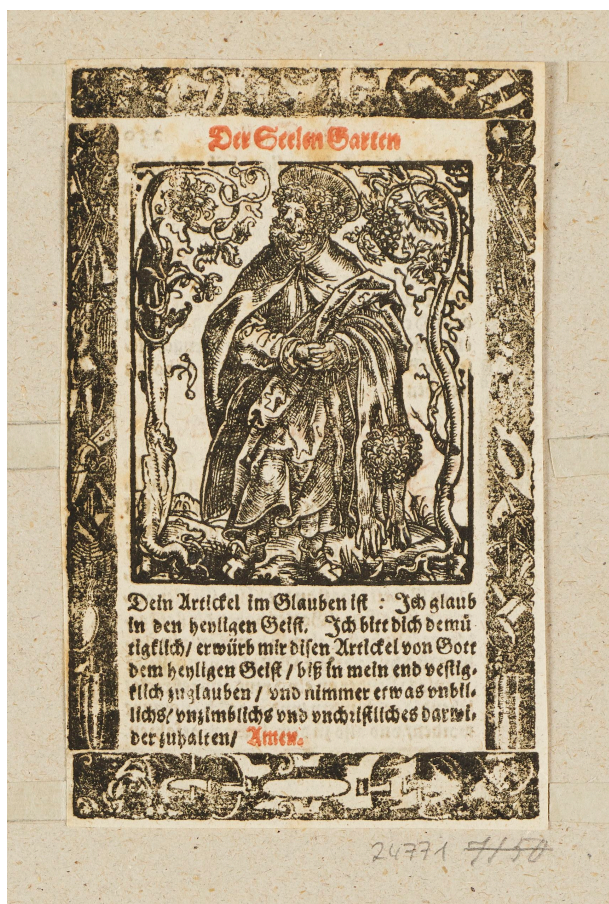 Der Seelen Garten
Dein Artickel im Glauben ist : Ich glaub
in den heyligen Geist. Ich bitt dich demü
tigklich / erwürb mir disen Artickel von Gott
dem heyligen Geist / biß in mein end vestig-
klich zuglauben / vnd nimmer etwas vnbil-
lichs / vnzimblichs vnd vnchristliches darwi-
der zuhalten / Amen.
24771 7150